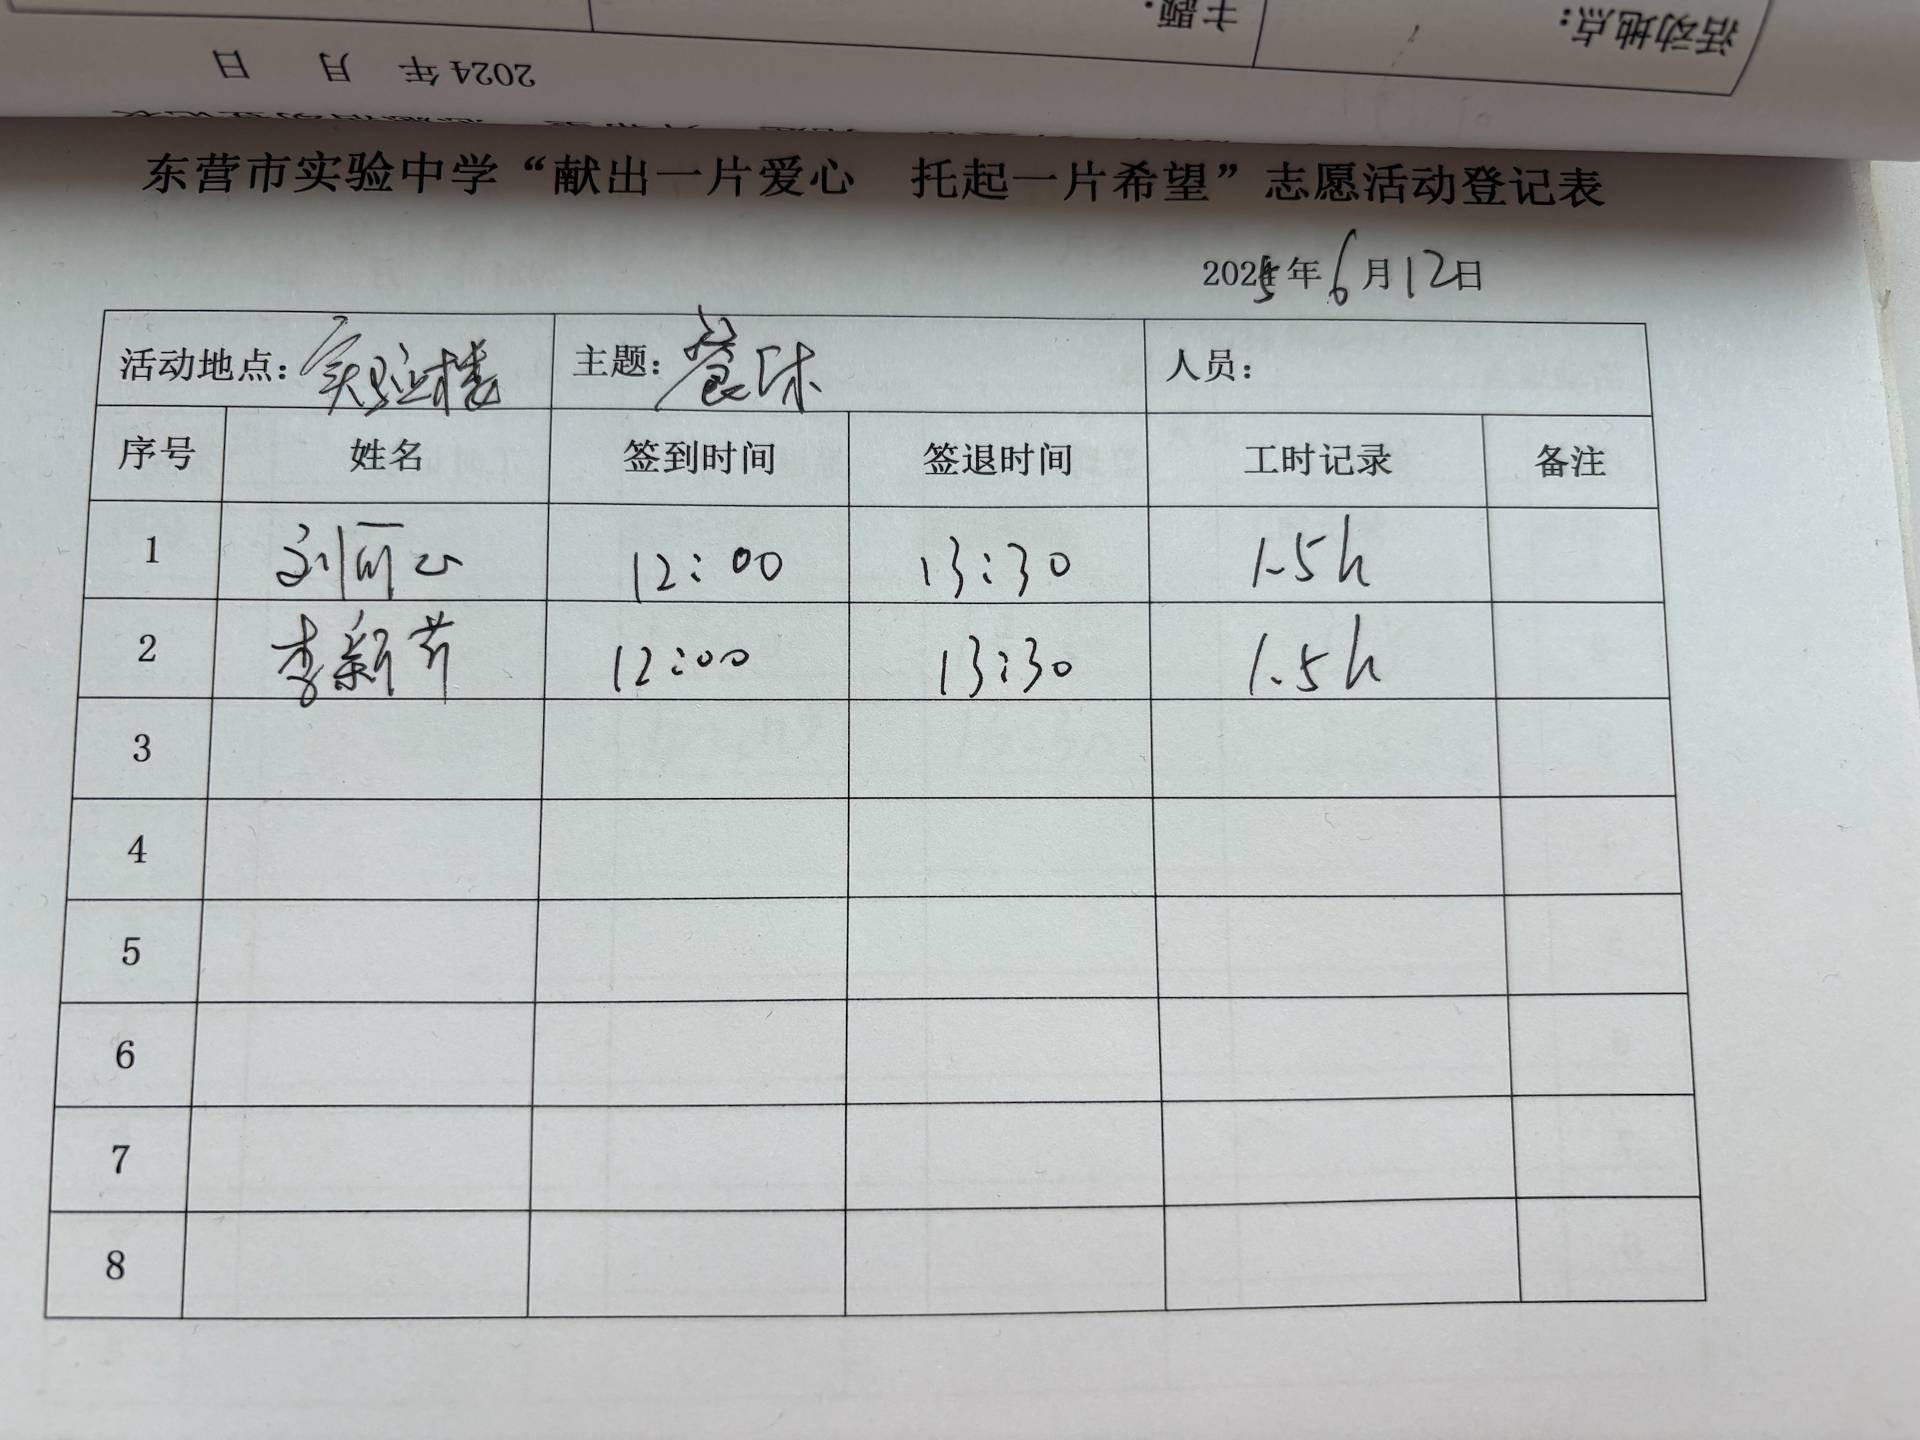 活动地点:
主题:
2024 年 月 日
东营市实验中学“献出一片爱心 托起一片希望”志愿活动登记表
2025年6月12日
活动地点: 实验楼 主题: 餐休 人员:
序号 姓名 签到时间 签退时间 工时记录 备注
1 刘丽 12:00 13:30 1.5h
2 李新芳 12:00 13:30 1.5h
3
4
5
6
7
8